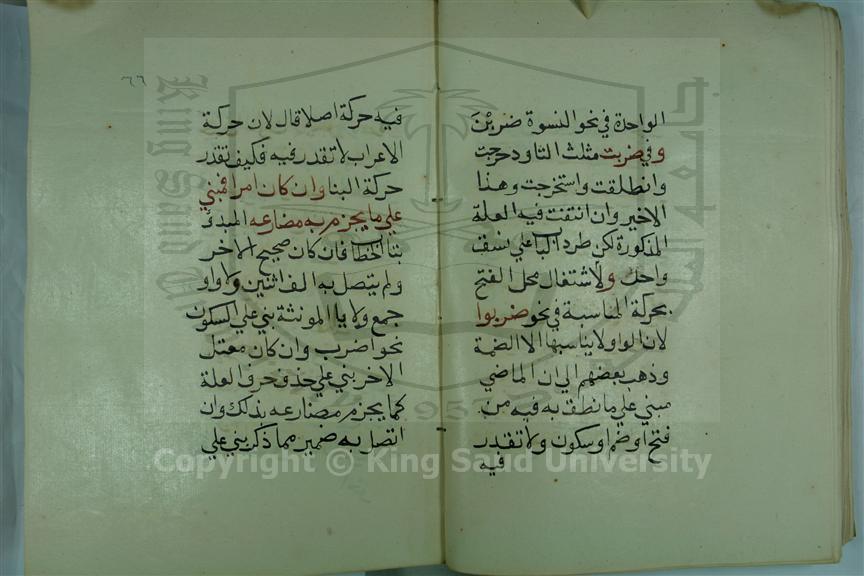 الواحدة في نحو النسوة ضربْنَ
وفي ضربت مثلث التا ودحرجت
وانطلقت واستخرجت وهذا
الاخير وان انتفت فيه العلة
المذكورة لكن طرد الباب علي نسق
واحد ولاشتغال محل الفتح
بحركة المناسبة في نحو ضربوا
لان الواو لا يناسبها الا الضمة
وذهب بعضهم الي ان الماضي
مبني علي ما نطق به فيه من
فتح او ضم او سكون ولا تقدر
فيه
٦٦
فيه حركة اصلا قال لان حركة
الاعراب لا تقدر فيه فكيف تقدر
حركة البنا وان كان امرا فبني
علي ما يجزم به مضارعه المبدؤ
بتا الخطاب فان كان صحيح الاخر
ولم يتصل به الف اثنين ولا واو
جمع ولا يا المونثة بني علي السكون
نحو اضرب وان كان معتل
الاخر بني علي حذف حرف العلة
كما يجزم مضارعه بذلك وان
اتصل به ضمير مما ذكر بني علي
Copyright © King Saud University
جامعة الملك سعود
King Saud University
1957